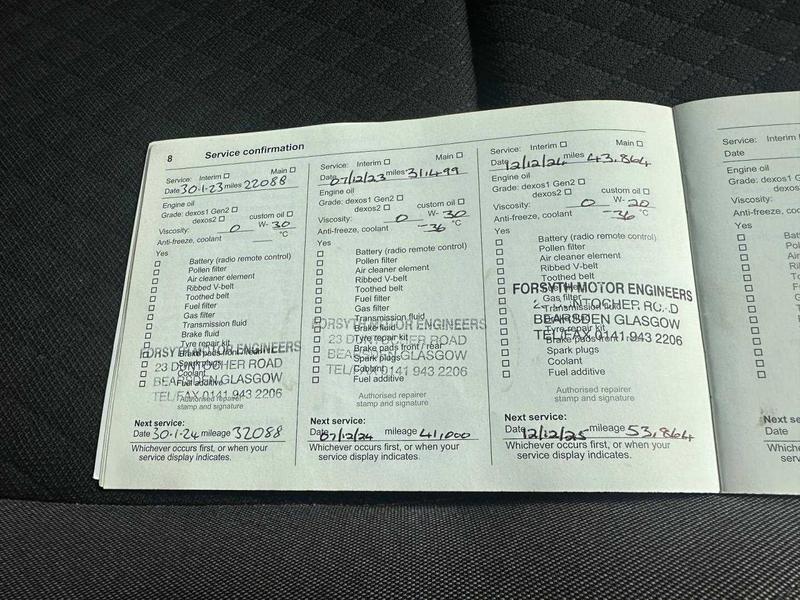 8 Service confirmation
Service: Interim Main
Date 30·1·23 miles 22088
Engine oil
Grade: dexos1 Gen2
dexos2 custom oil
Viscosity: 0 W- 30
Anti-freeze, coolant °C
Yes
Battery (radio remote control)
Pollen filter
Air cleaner element
Ribbed V-belt
Toothed belt
Fuel filter
Gas filter
Transmission fluid
Brake fluid
Tyre repair kit
Brake pads front / rear
Spark plugs
Coolant
Fuel additive
FORSYTH MOTOR ENGINEERS
23 DUNTOCHER ROAD
BEARSDEN GLASGOW
TEL/FAX 0141 943 2206
Authorised repairer
stamp and signature
Next service:
Date 30·1·24 mileage 32088
Whichever occurs first, or when your
service display indicates.
Service: Interim Main
Date 07/12/23 miles 31,499
Engine oil
Grade: dexos1 Gen2
dexos2 custom oil
Viscosity: 0 W- 30
Anti-freeze, coolant -36 °C
Yes
Battery (radio remote control)
Pollen filter
Air cleaner element
Ribbed V-belt
Toothed belt
Fuel filter
Gas filter
Transmission fluid
Brake fluid
Tyre repair kit
Brake pads front / rear
Spark plugs
Coolant
Fuel additive
FORSYTH MOTOR ENGINEERS
23 DUNTOCHER ROAD
BEARSDEN GLASGOW
TEL/FAX 0141 943 2206
Authorised repairer
stamp and signature
Next service:
Date 07/12/24 mileage 41,000
Whichever occurs first, or when your
service display indicates.
Service: Interim Main
Date 12/12/24 miles 43,864
Engine oil
Grade: dexos1 Gen2
dexos2 custom oil
Viscosity: 0 W- 20
Anti-freeze, coolant -36 °C
Yes
Battery (radio remote control)
Pollen filter
Air cleaner element
Ribbed V-belt
Toothed belt
Fuel filter
Gas filter
Transmission fluid
Brake fluid
Tyre repair kit
Brake pads front / rear
Spark plugs
Coolant
Fuel additive
FORSYTH MOTOR ENGINEERS
BEARSDEN GLASGOW
TEL/FAX 0141 943 2206
Authorised repairer
stamp and signature
Next service:
Date 12/12/25 mileage 53,864
Whichever occurs first, or when your
service display indicates.
Service: Interim
Date
Engine oil
Grade: dexos1
dexos2
Viscosity:
Anti-freeze, coolant
Yes
Next se
Date
Whichev
servic